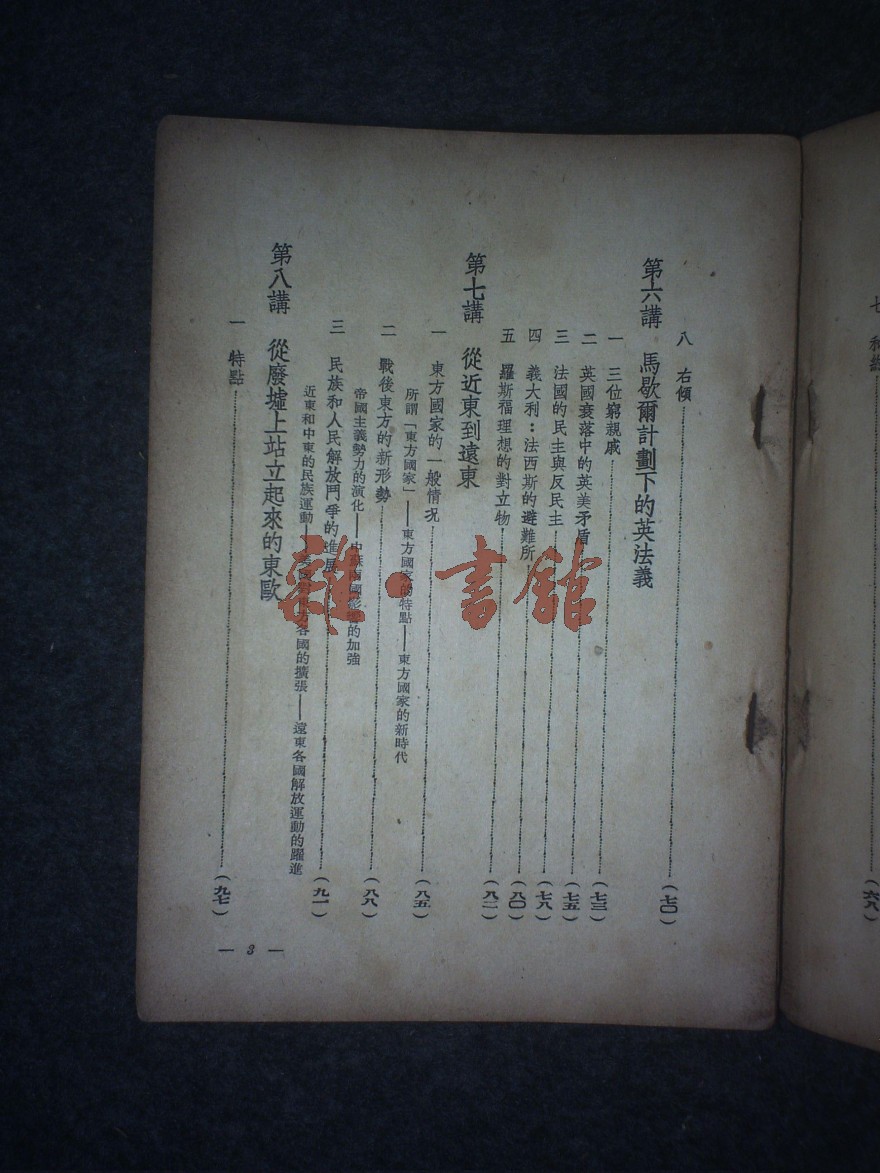 七 和約
(六八)
八 右傾 (七〇)
第六講 馬歇爾計劃下的英法義
一 三位窮親戚 (七三)
二 英國衰落中的英美矛盾 (七五)
三 法國的民主與反民主 (七八)
四 義大利：法西斯的避難所 (八〇)
五 羅斯福理想的對立物 (八二)
第七講 從近東到遠東
一 東方國家的一般情況 (八五)
所謂「東方國家」——東方國家的特點——東方國家的新時代
二 戰後東方的新形勢 (八八)
帝國主義勢力的演化——中蘇兩國影響的加強
三 民族和人民解放鬥爭的進展 (九一)
近東和中東的民族運動——各國的擴張——遠東各國解放運動的躍進
第八講 從廢墟上站立起來的東歐
一 特點 (九七)
— 3 —
雜·書館